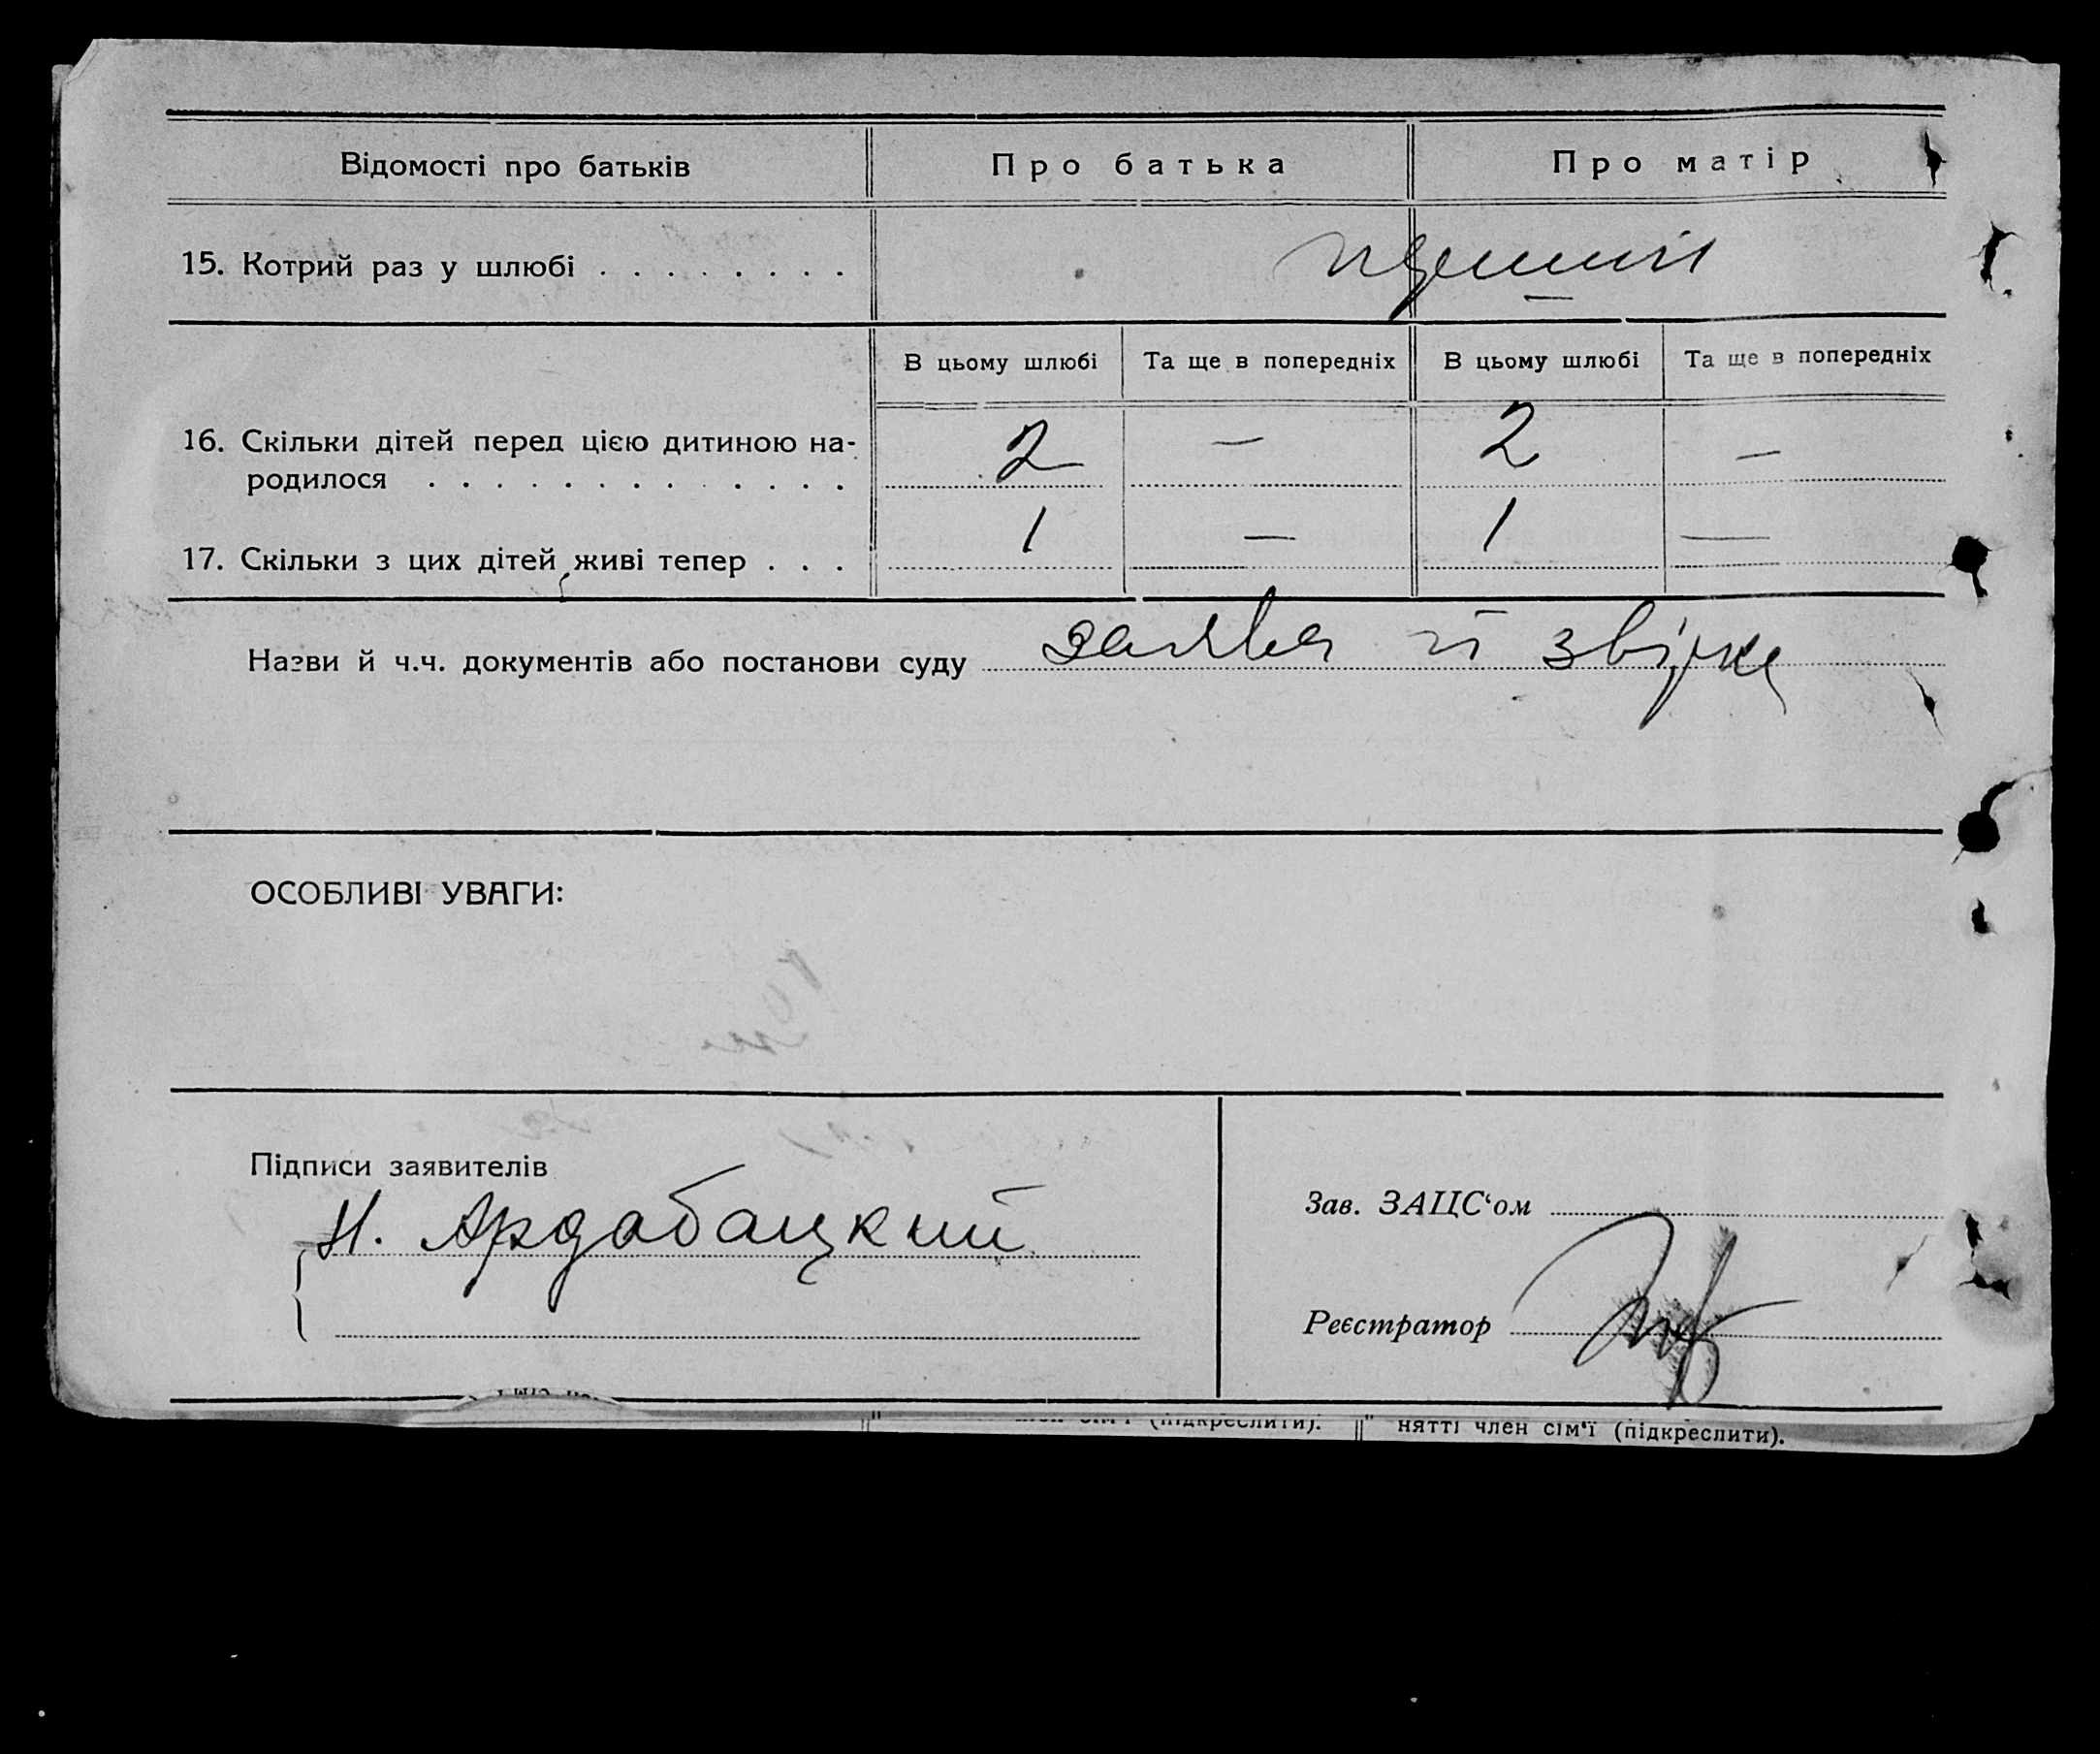 Відомості про батьків Про батька Про матір
15. Котрий раз у шлюбі . . . . . . . . перший
В цьому шлюбі Та ще в попередніх В цьому шлюбі Та ще в попередніх
16. Скільки дітей перед цією дитиною на-
родилося . . . . . . . . . . . . . . 2 — 2 —
17. Скільки з цих дітей живі тепер . . . 1 — 1 —
Назви й ч.ч. документів або постанови суду заява й звірка
ОСОБЛИВІ УВАГИ:
Підписи заявителів
Н. Ардабацкий
Зав. ЗАЦС‘ом
Реєстратор
(підкреслити). нятті член сім‘ї (підкреслити).